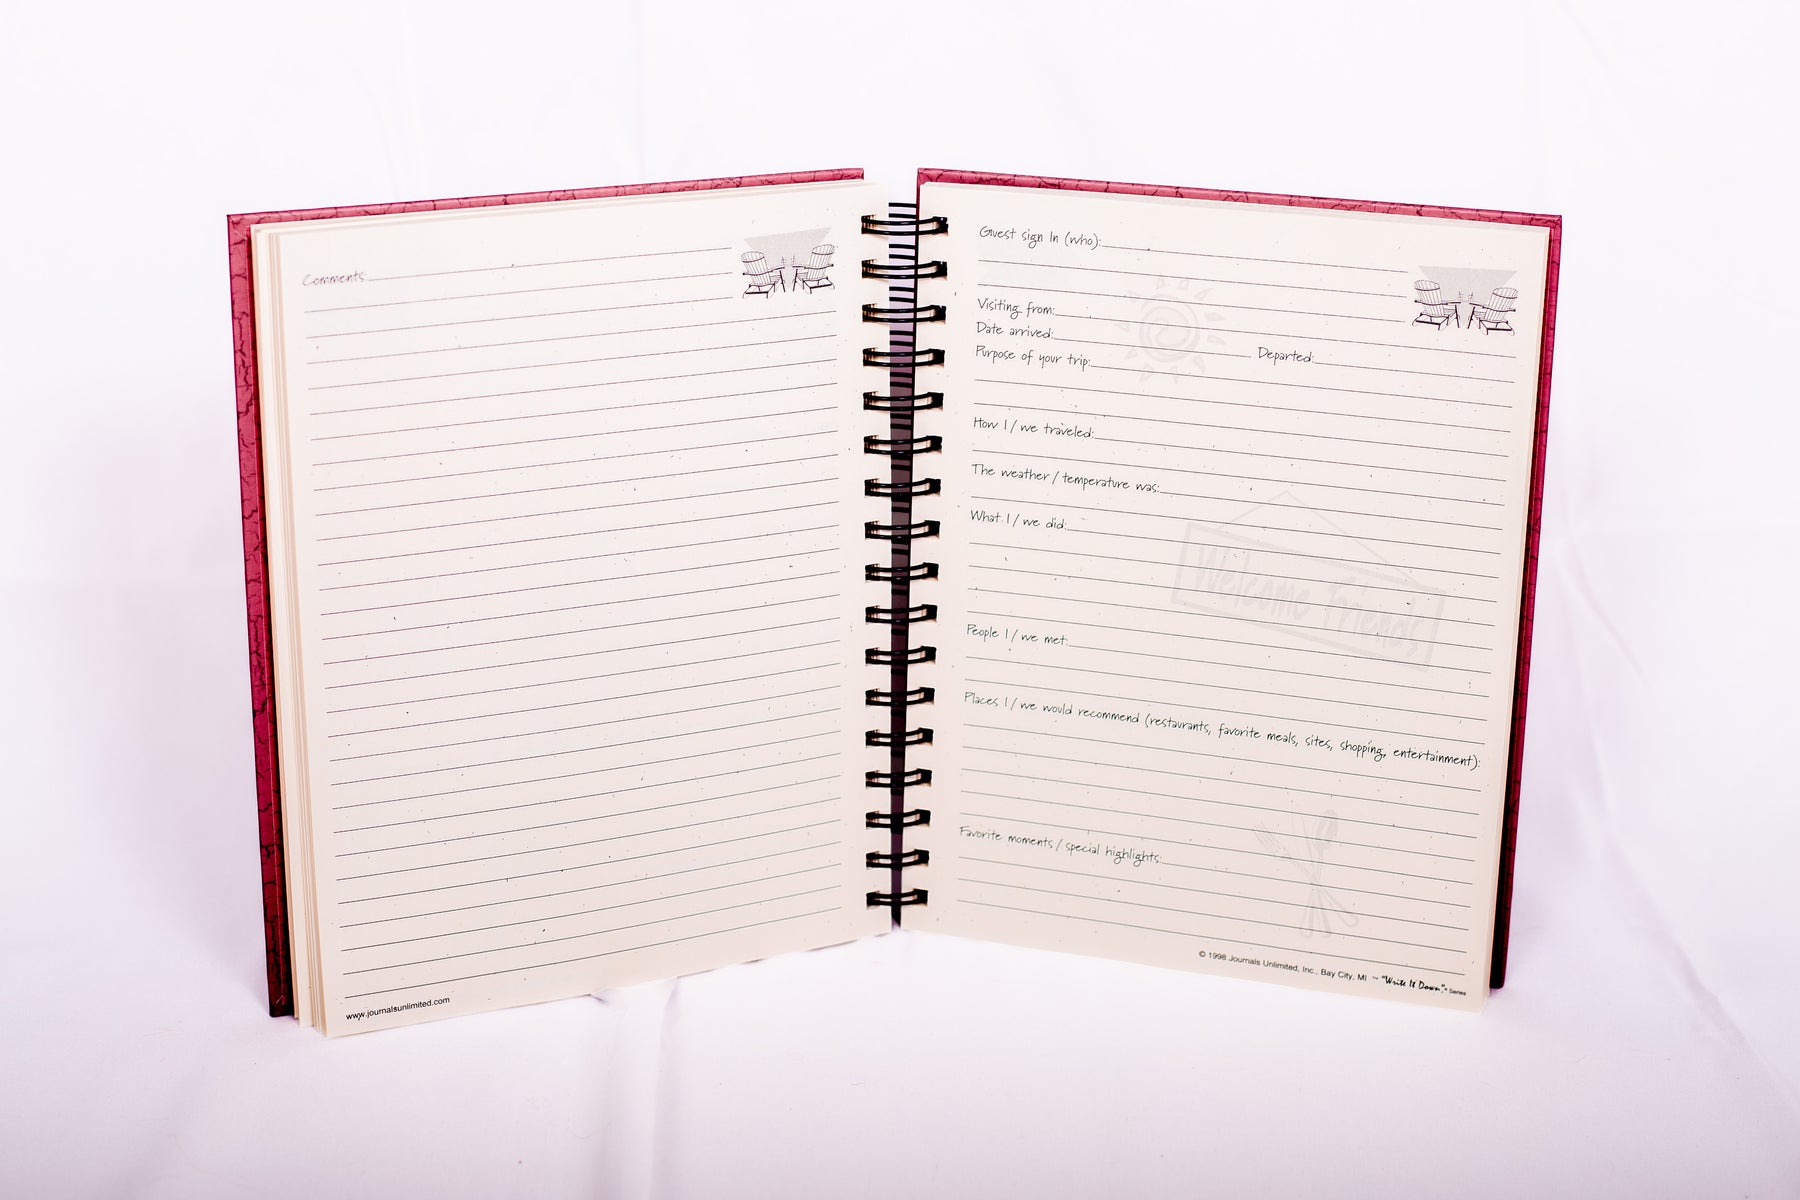 Comments:
www.journalsunlimited.com
Guest sign In (who):
Visiting from:
Date arrived: Departed:
Purpose of your trip:
How I / we traveled:
The weather / temperature was:
What I / we did:
Welcome Friends
People I / we met:
Places I / we would recommend (restaurants, favorite meals, sites, shopping, entertainment):
Favorite moments / special highlights:
© 1998 Journals Unlimited, Inc., Bay City, MI ~ "Write It Down"® Series